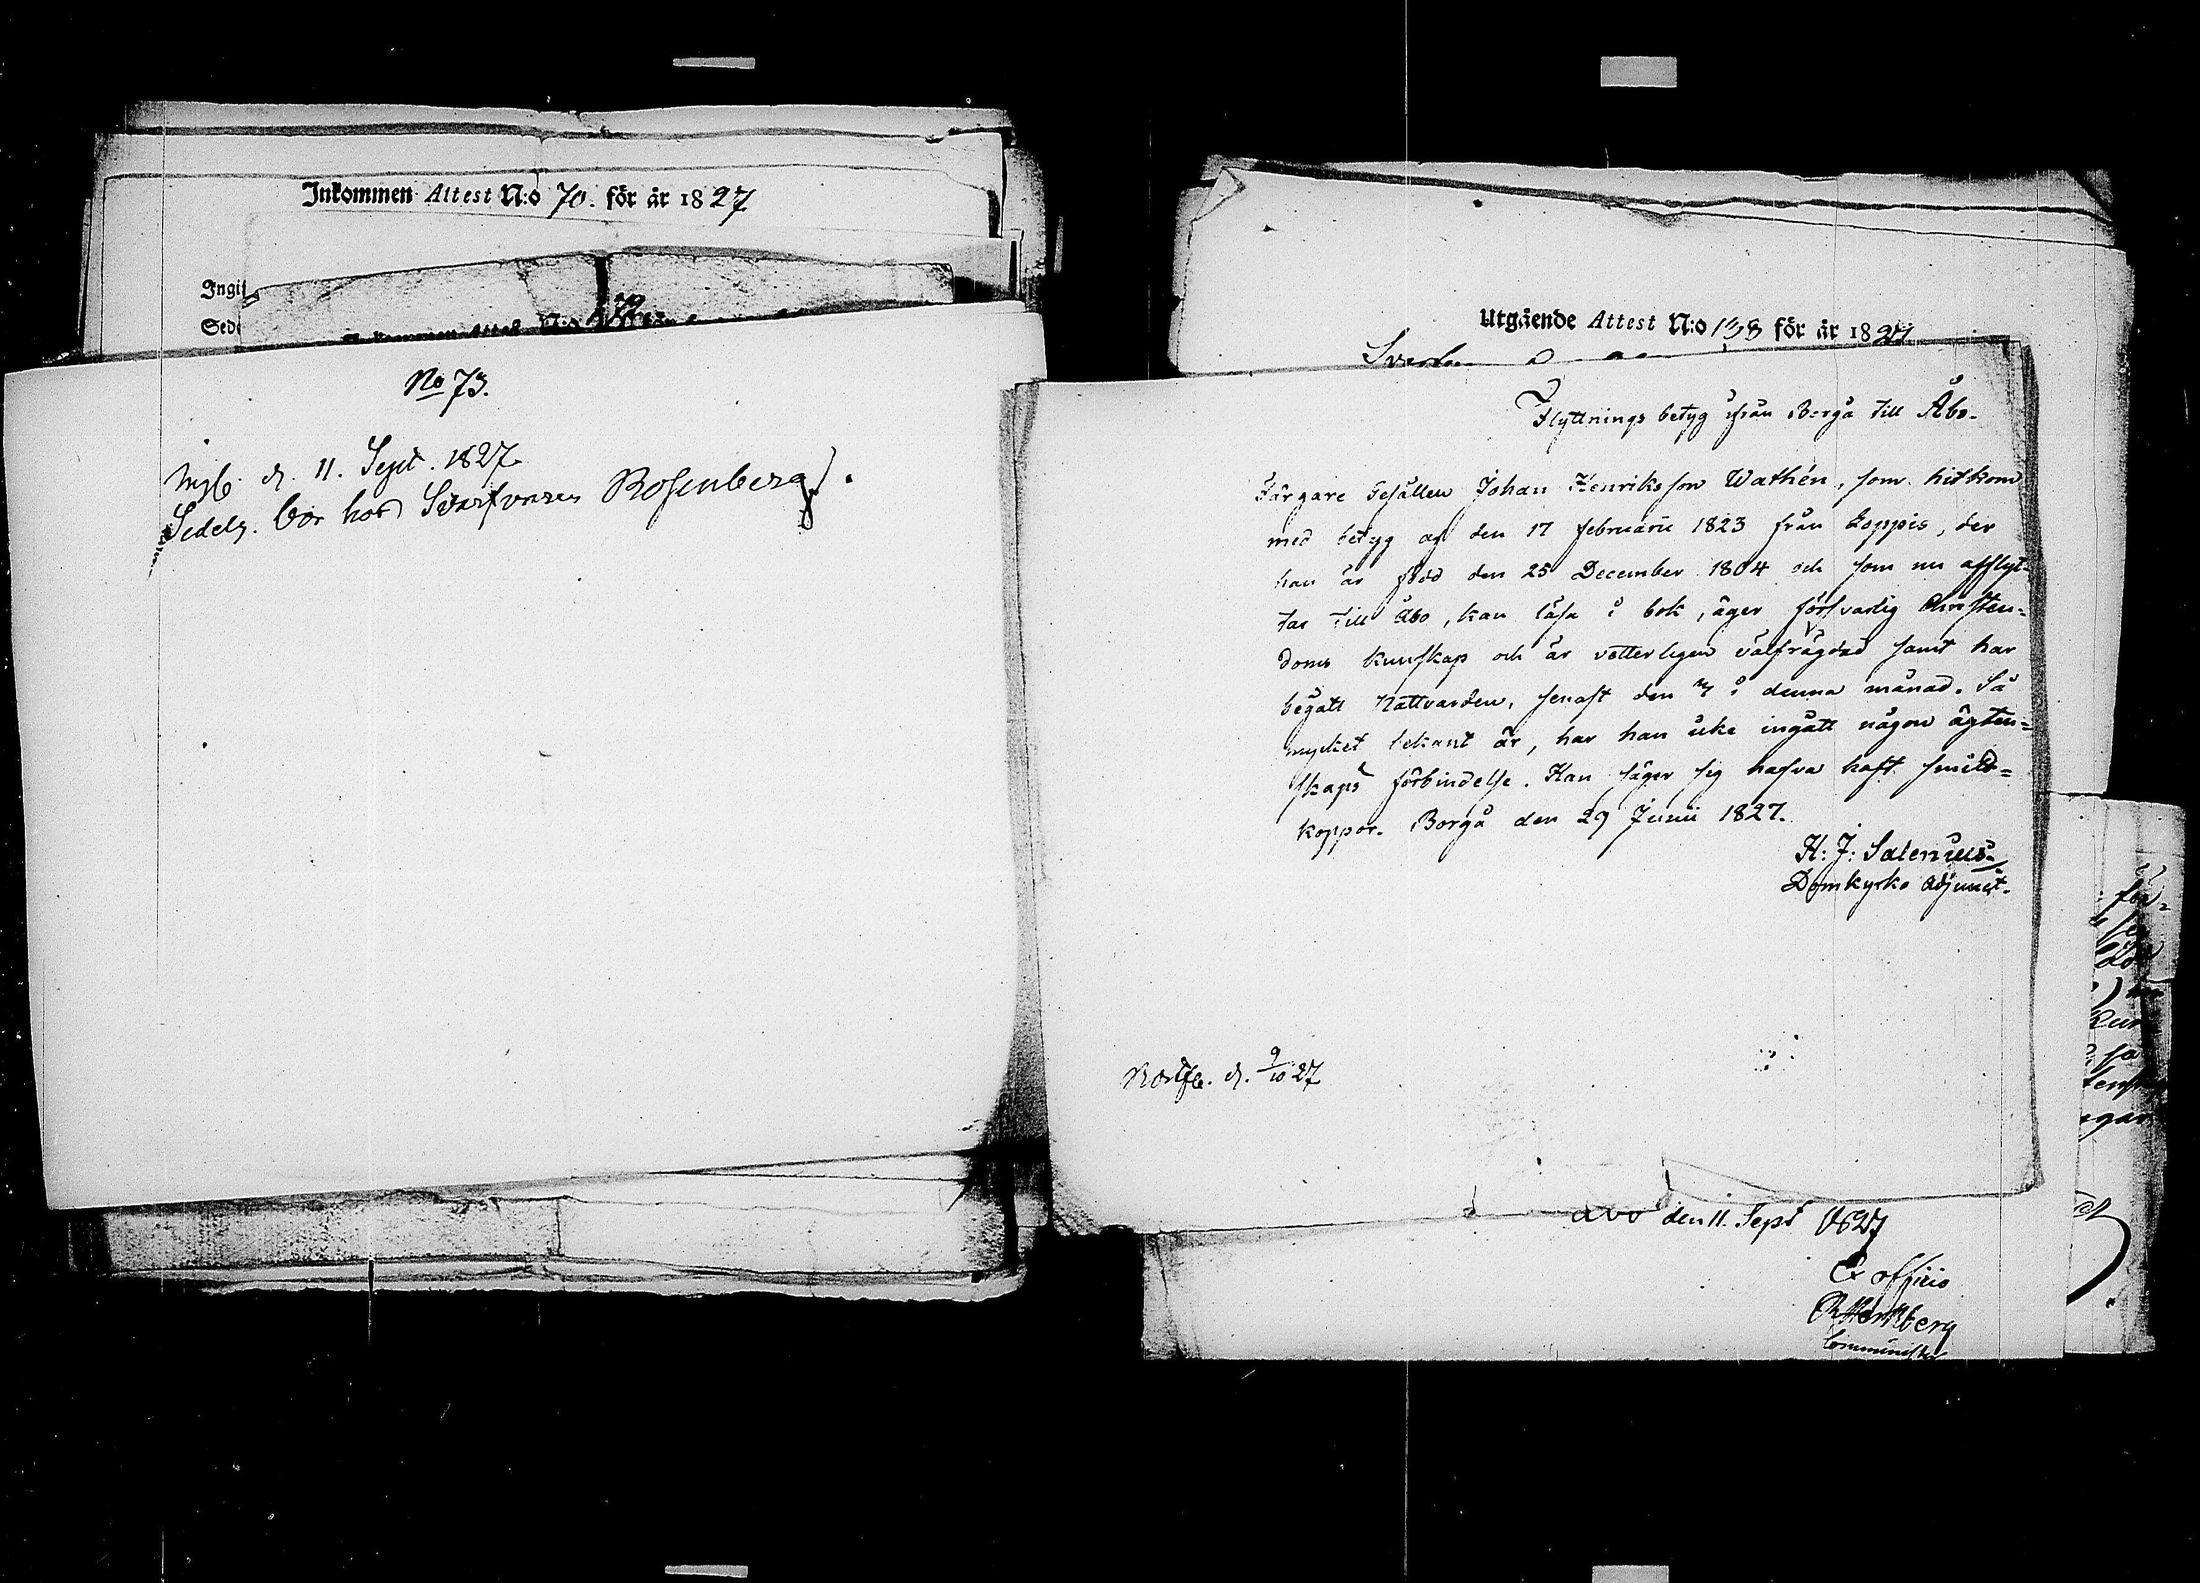 Inkommen Attest N:o 70. för år 1827
Ingif
Sede
No 73.
Ingb. d. 11. Sept. 1827
Sedeln. Bor hos Svarfvaren Rosenberg.
Utgående Attest N:o 138 för år 1827
Flyttnings betyg ifrån Borgå till Åbo.
Färgare Gesällen Johan Henriksson Wathén, som hitkom
med betyg af den 17 februarii 1823 från Loppis, der
han är född den 25 December 1804 och som nu afflyt-
tar till Åbo, kan läsa i bok, äger försvarlig Christen-
doms kunskap och är vetterligen välfrägdad samt har
begått Nattvarden, senast den i denna månad. Så
mycket bekant är, har han icke ingått någon ägten-
skaps förbindelse. Han säger sig hafva haft smitt-
koppor. Borgå den 29 Junii 1827.
H: J: Salenius.
Domkyrko Adjunct.
d. 9/10 27
Åbo den 11. Sept 1827
Ex officio
Comminister